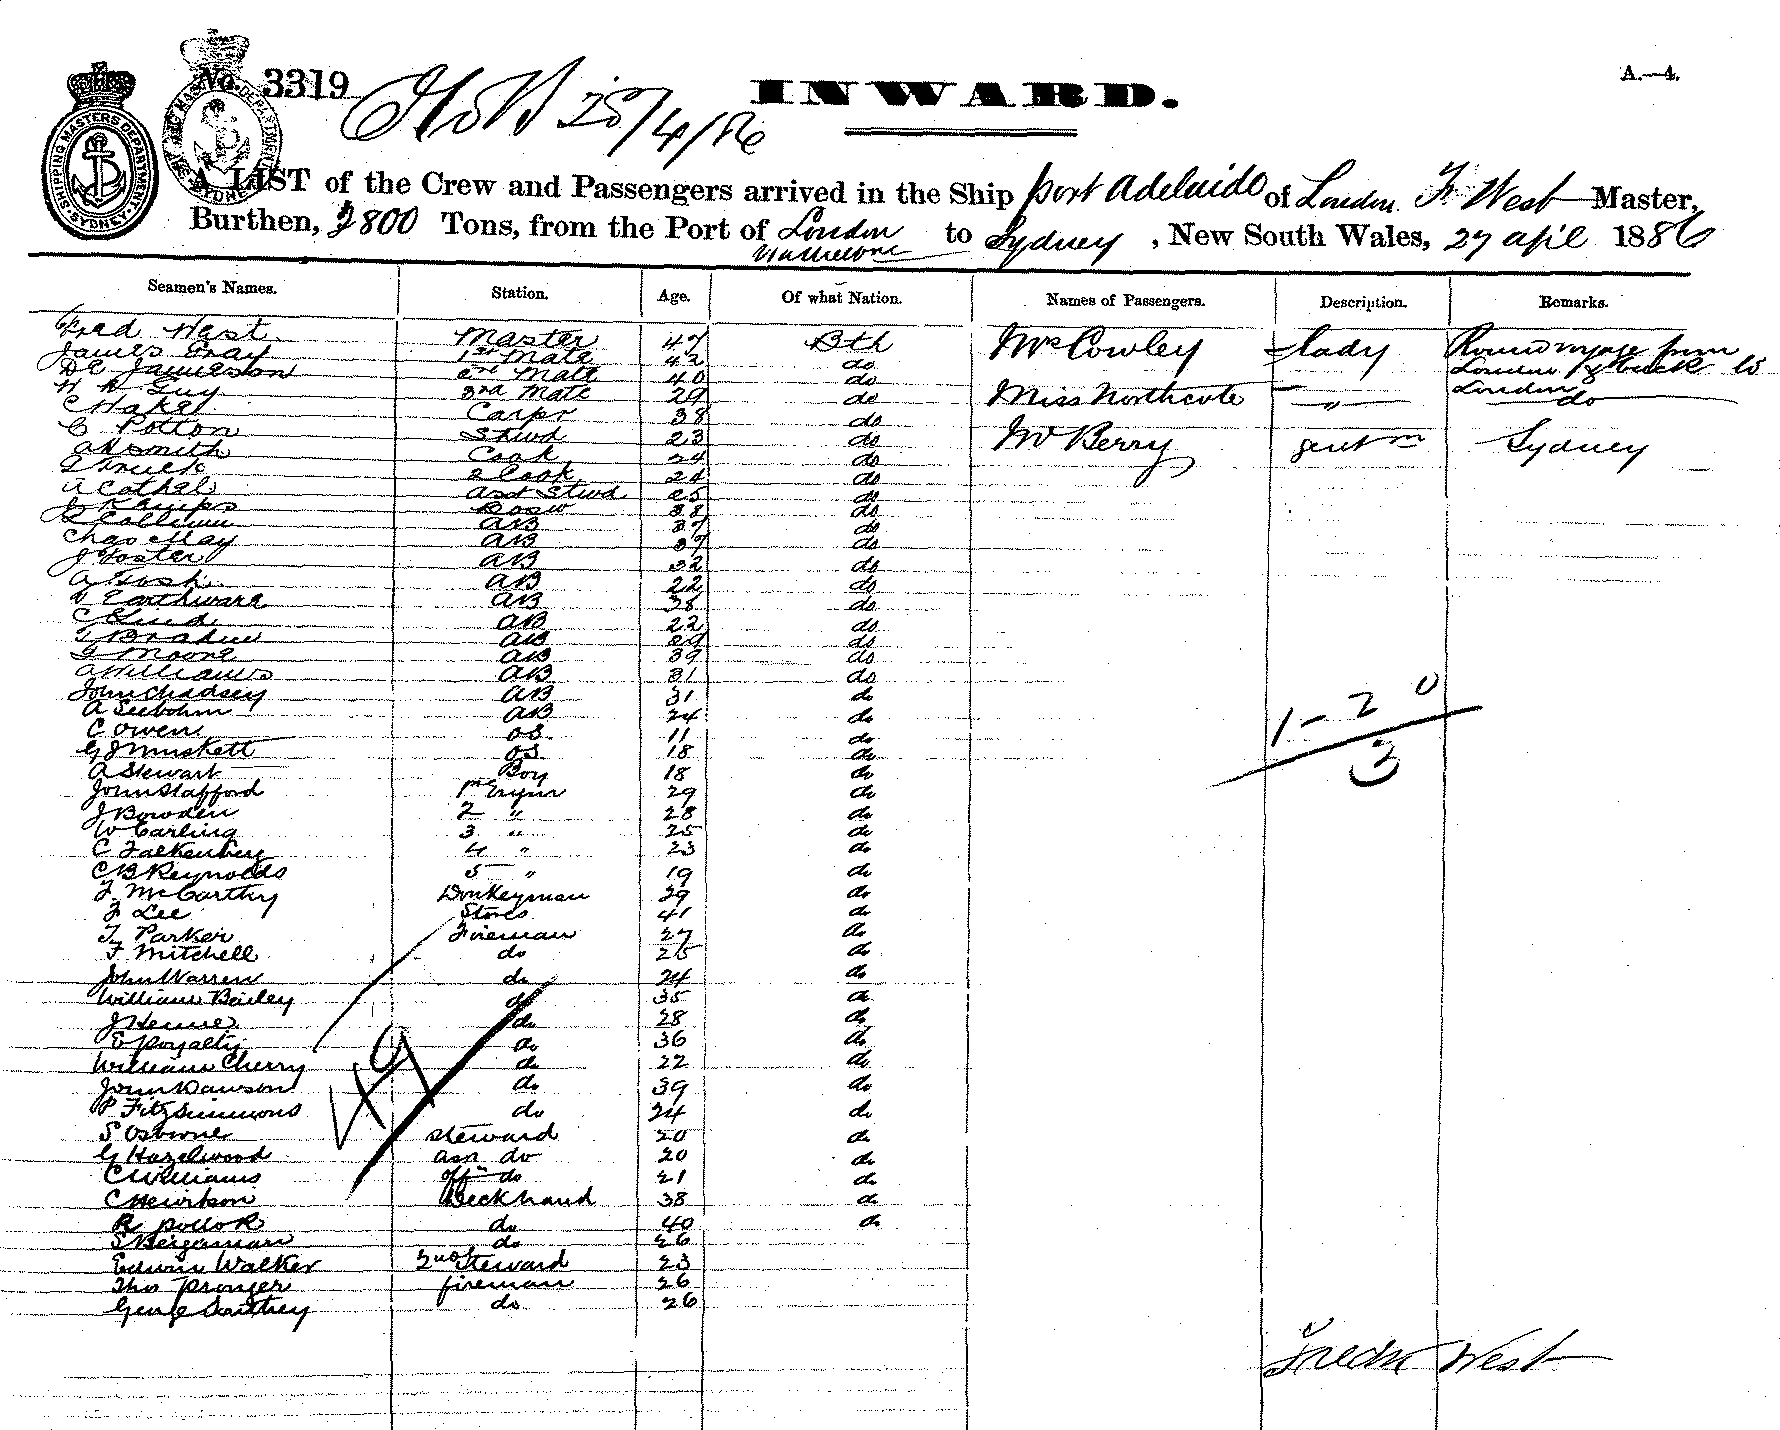 No. 3319
28/4/86
INWARD.
A.—4.
SHIPPING MASTERS DEPARTMENT SYDNEY
A LIST of the Crew and Passengers arrived in the Ship Port Adelaide of London F. West Master,
Burthen, 2800 Tons, from the Port of London to Sydney, New South Wales, 27 April 1886
Seamen's Names. Station. Age. Of what Nation. Names of Passengers. Description. Remarks.
Fred West Master 47 Bth Mrs Cowley Lady Round voyage from
James Gray 1st Mate 42 do London & back to
D E Jamieson 2nd Mate 40 do London
H R Guy 3rd Mate 29 do Miss Northcote " do
C Hakel Carpr 38 do
C Potton Stwd 23 do Mr Berry gentm Sydney
A H Smith Cook 24 do
2 Cook 24 do
A Cathels asst Stwd 25 do
J Phillips Bosn 38 do
AB 37 do
Chas May AB 37 do
J Foster AB 32 do
AB 22 do
AB 38 do
C AB 22 do
AB 29 do
G Moore AB 39 do
A Williams AB 31 do
John Chadsey AB 31 do
A Seebohm AB 24 do
C Owen OS 11 do
G J Muskett OS 18 do
A Stewart Boy 18 do
John Stafford 1st Engnr 29 do
J Bowden 2 " 28 do
W Carling 3 " 25 do
C Falkenberg 4 " 23 do
C B Reynolds 5 " 19 do
F McCarthy Donkeyman 29 do
F Lee Stores 41 do
T Parker Fireman 27 do
F Mitchell do 25 do
John Warren do 24 do
William Bailey do 35 do
J do 28 do
E Royalty do 36 do
William Cherry do 22 do
John Dawson do 39 do
P Fitzsimmons do 24 do
S Osborne Steward 20 do
G Hazelwood ass do 20 do
C Williams offr do 21 do
C Hewitson Deckhand 38 do
R Pollok do 40 do
S Bergaman do 26
Edwin Walker 2nd Steward 23
Thos Pronger fireman 26
George do 26
1 – 2 0
3
49
Fredk West